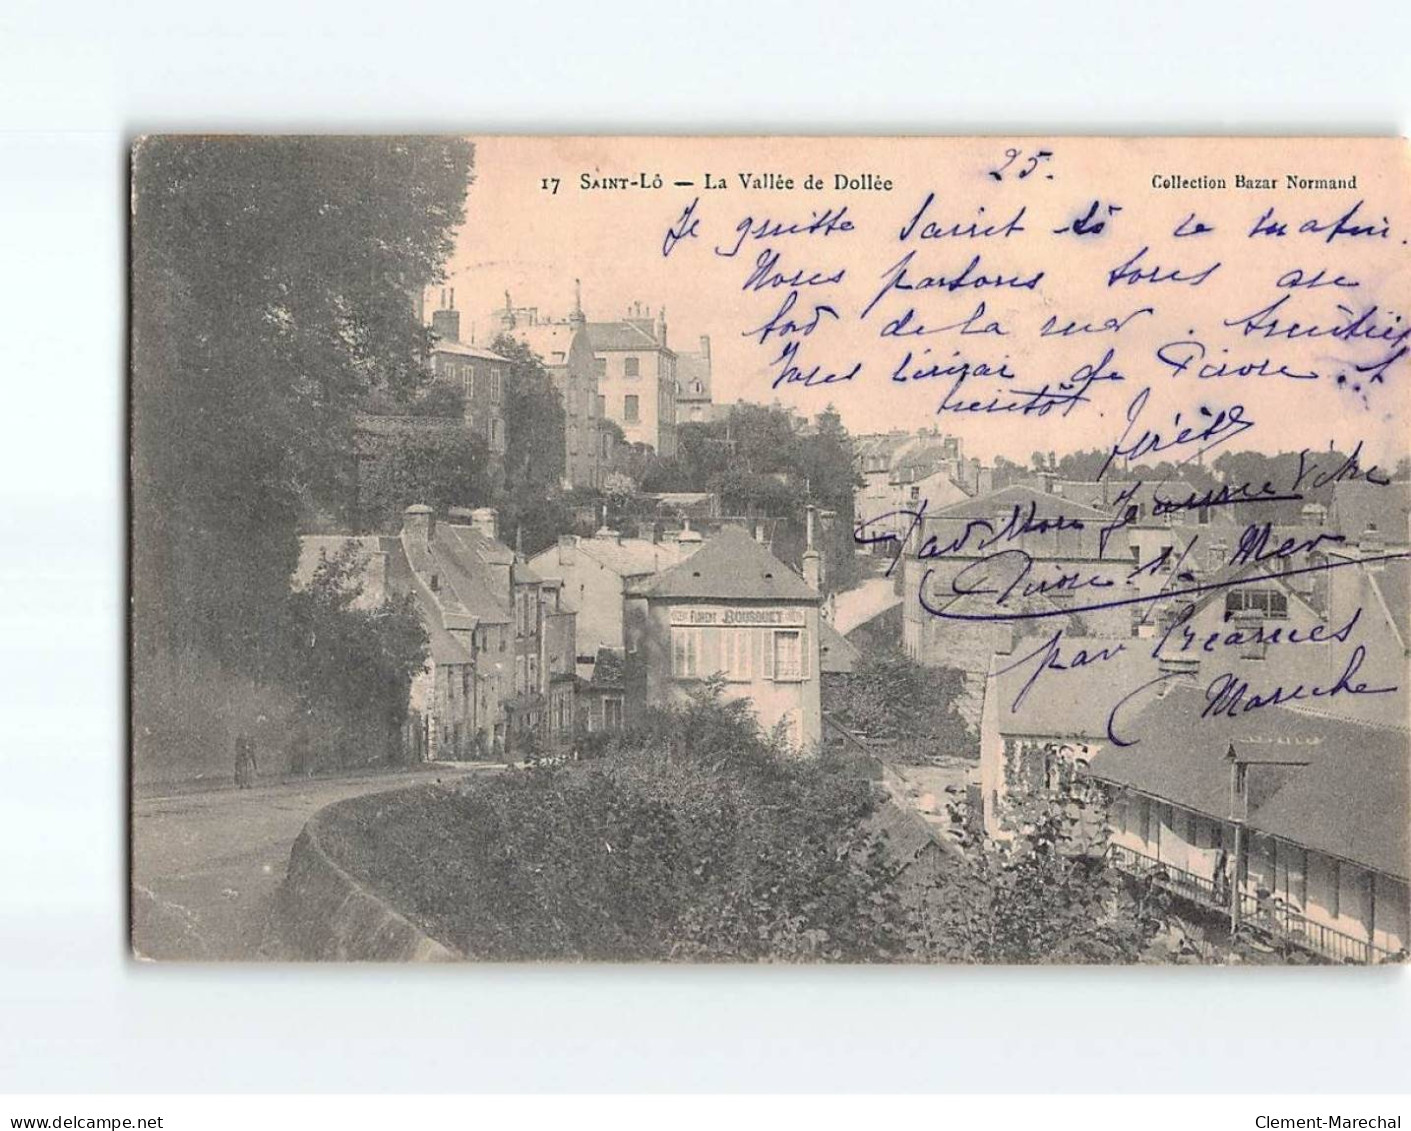 17 SAINT-LÔ — La Vallée de Dollée
Collection Bazar Normand
25.
Je quitte Saint-Lô ce matin.
Nous partons tous au
bord de la mer.
Vous écrirai de Pirou. A
bientôt.
Pavillon Jeanne
Pirou s/ Mer
par Créances
Manche
BOUSQUET
www.delcampe.net
Clement-Marechal